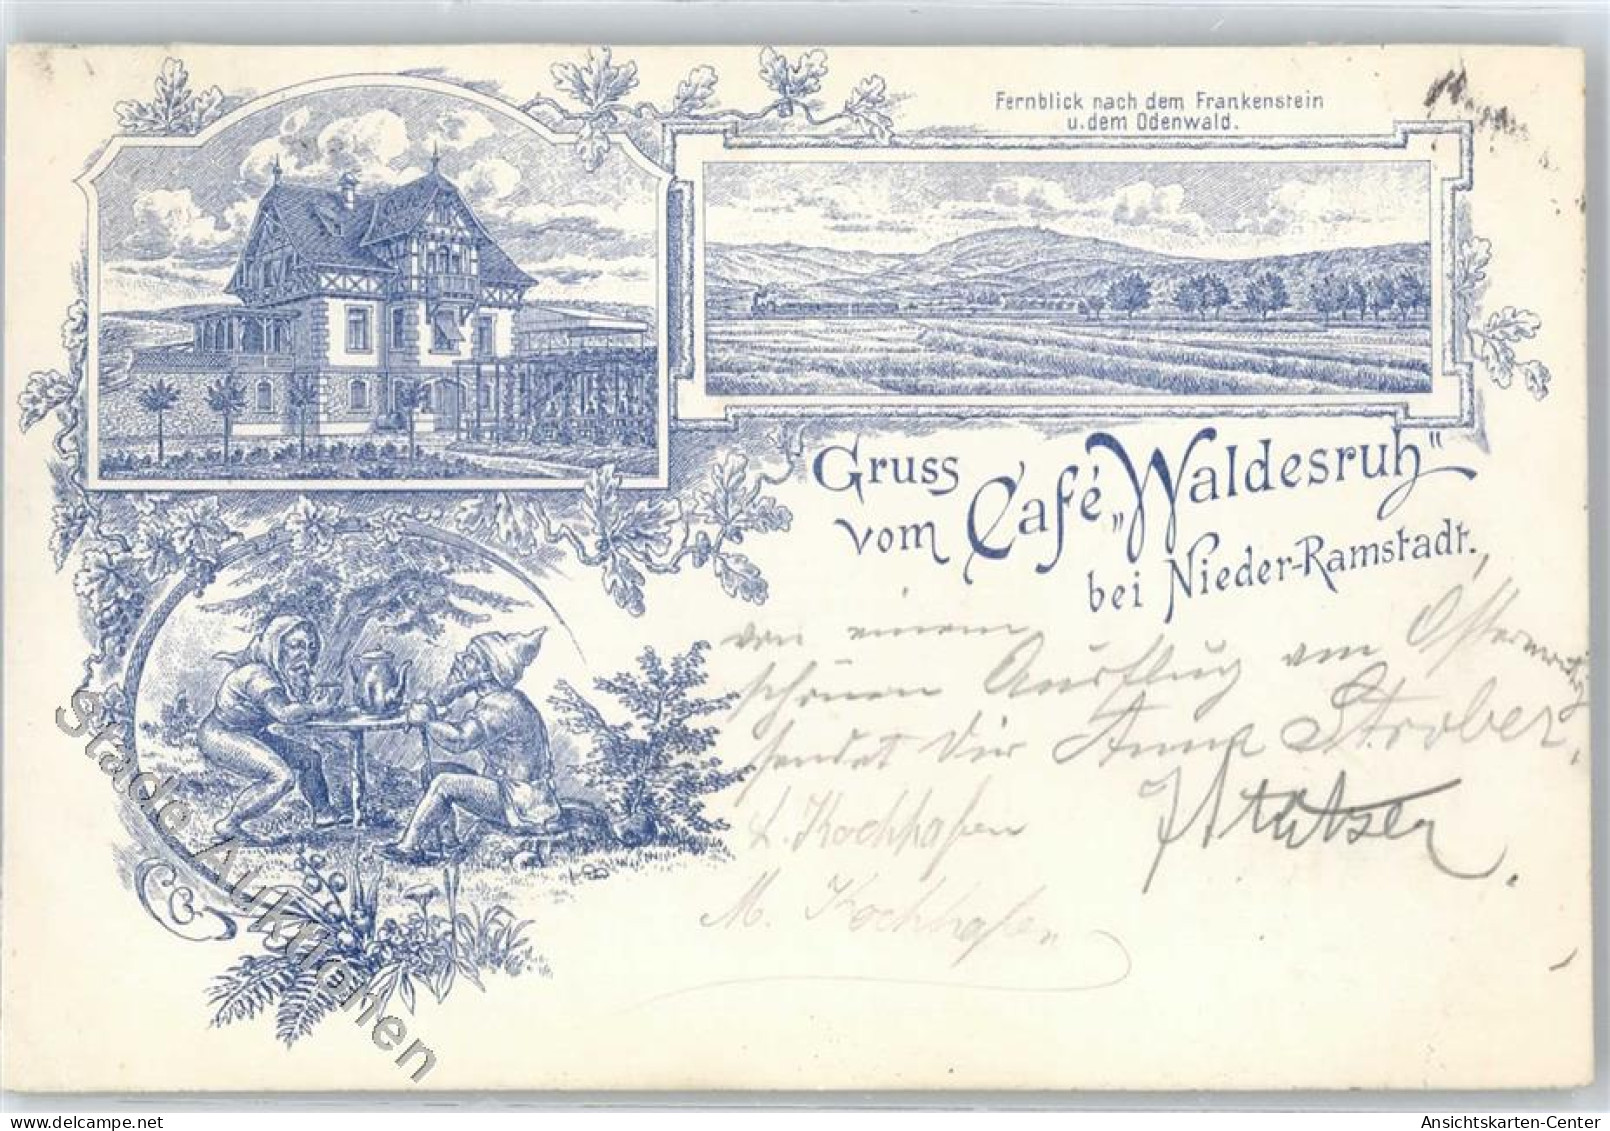 Fernblick nach dem Frankenstein
u. dem Odenwald.
Gruss
vom Café „Waldesruh“
bei Nieder-Ramstadt.
von einem
schönen Ausflug am Ostermontag
sendet Dir Anna Strober.
Kochhafen
M. Kochhafen
Stade Auktionen
Ansichtskarten-Center